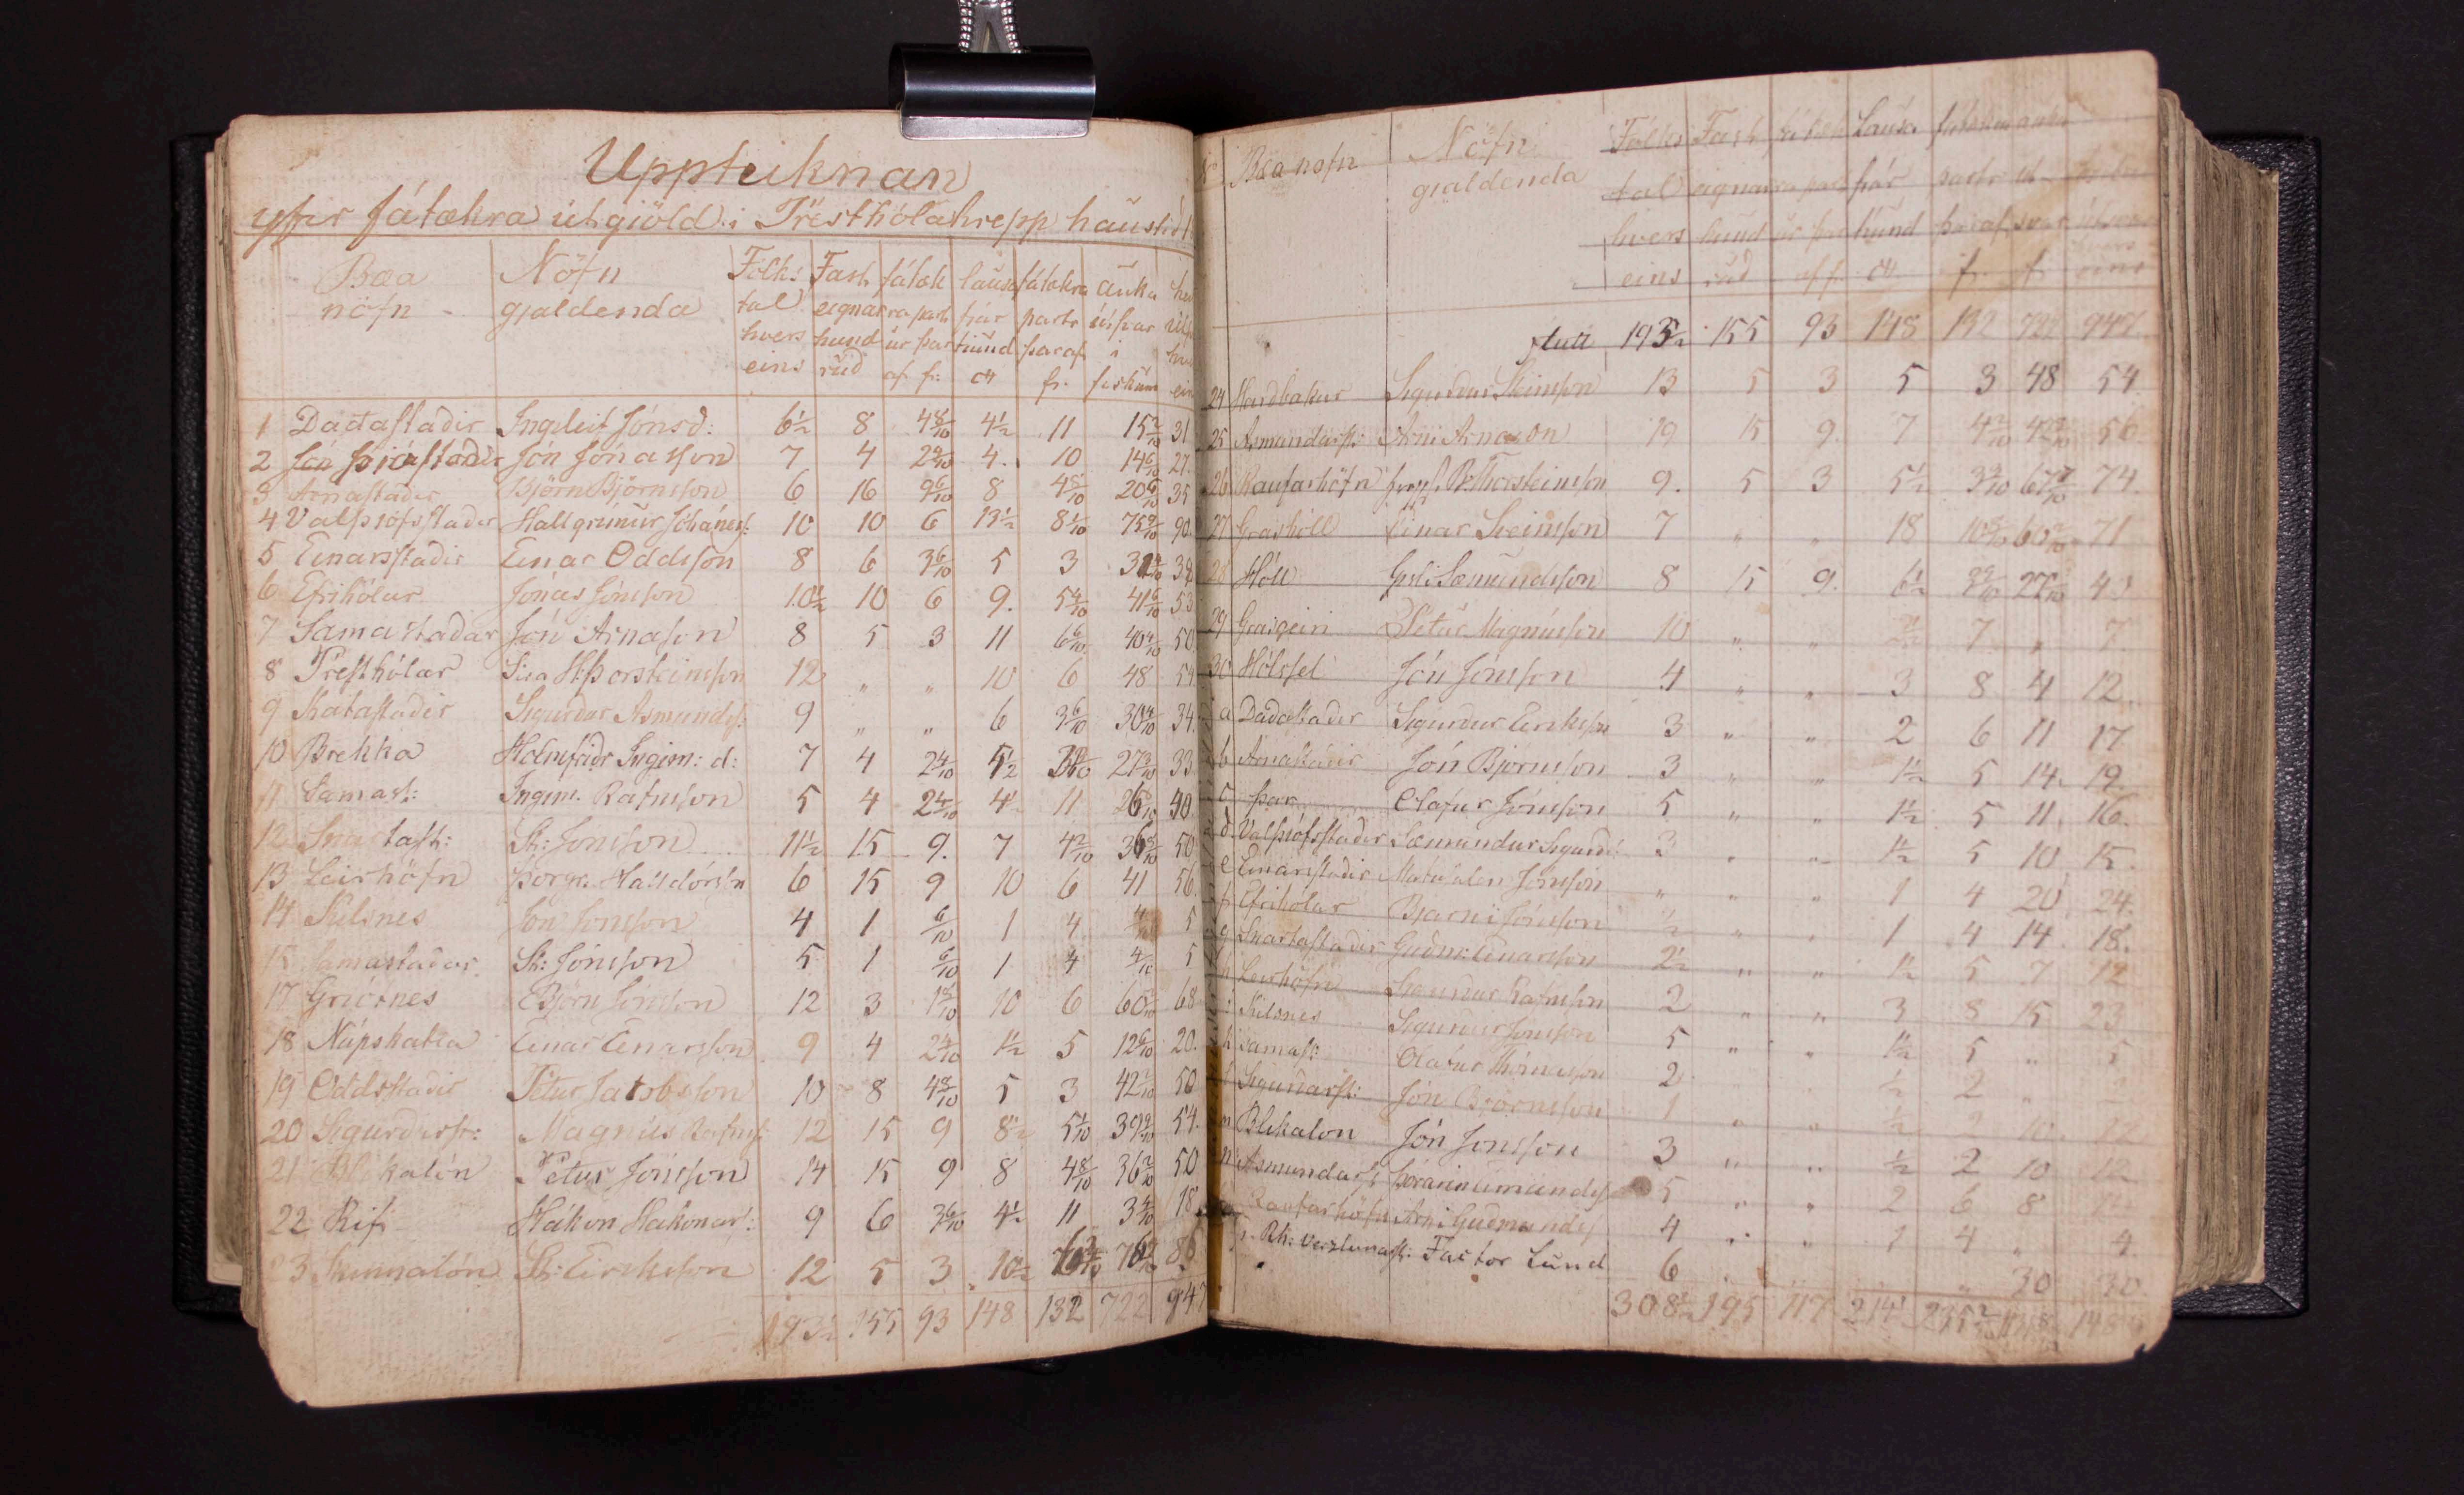 Uppteiknan
yfir fátækra útgjöld i Presthólahrepp haustid
Bæa nöfn
Nöfn gjaldenda
Fólks tal hvers eins
Fast eignar hund rud
fátæk ra part úr þar af f:
lausa fjár tiund
fátækra partr þaraf fr.
auka útsvar i fiskum
1 Dadastadir Ingeleif Jónsd: 6½ 8 4 8/10 4½ 11 15 2/10 31
2 Þjófastadir Jón Jónasson 7 4 2 4/10 4. 10 14 6/10 27.
3 Arnastadir Björn Björnsson 6 16 9 6/10 8 4 8/10 20 6/10 35
4 Valþjófsstadir Hallgrímur Jóhanness: 10 10 6 13½ 8 1/10 75 9/10 90
5 Einarsstadir Einar Oddsson 8 6 3 6/10 5 3 31 4/10 38
6 Efrihólar Jónas Jónsson 10½ 10 6 9. 5 4/10 41 6/10 53
7 Sama stadar Jón Arnason 8 5 3 11 6 6/10 40 4/10 50
8 Presthólar Sira St Þorsteinsson 12 „ „ 10 6 48 54
9 Katastadir Sigurdur Asmunds: 9 „ „ 6 3 6/10 30 4/10 34.
10 Brekka Holmfridr Sigm: d: 7 4 2 4/10 5½ 3 3/10 27 3/10 33
11 Samast: Ingim. Rafnsson 5 4 2 4/10 4½ 11 26 6/10 40
12 Snartast: St: Jonsson 11½ 15 9. 7 4 2/10 36 8/10 50
13 Leirhöfn Þorgr. Halldórsson 6 15 9 10 6 41 56
14 Kilsnes Jón Jonsson 4 1 6/10 1 4 4/10 5
15 Samastadar St: Jónsson 5 1 6/10 1 4 4/10 5
17 Grjótnes Björn Jónsson 12 3 1 8/10 10 6 60 2/10 68
18 Núpskatla Einar Einarsson 9 4 2 4/10 1½ 5 12 6/10 20
19 Oddsstadir Pétur Jakobsson 10 8 4 8/10 5 3 42 2/10 50
20 Sigurdarst: Magnús Rafns: 12 15 9 8½ 5 1/10 39 9/10 54.
21 Blikalón Petur Jónsson 14 15 9 8 4 8/10 36 2/10 50
22 Rif Hákon Hakonar: 9 6 3 6/10 4½ 11 3 4/10 18
23 Skinnalón St: Eireksson 12 5 3 10½ 6 3/10 76 7/10 86
193½ 155 93 148 132 722 947
No Bæa nofn
Nöfn gjaldenda
Fólks tal hvers eins
Fast eignar hund rud
fátæk ra part úr þar af f.
Lausa fjár tiund
flutt 193½ 155 93 148 132 722 947
24 Hardbakur Sigurdur Steinsson 13 5 3 5 3 48 54
25 Asmundarst: Arni Arnason 19 15 9. 7 4 2/10 42 8/10 56
26 Raufarhöfn Thorsteinsson 9. 5 3 5½ 3 3/10 67 7/10 74.
27 Grashóll Einar Sveinsson 7 „ „ 18 10 8/10 60 2/10 71
28 Hóll Gisli Sæmundsson 8 15 9. 6½ 3 9/10 27 1/10 40
29 Grasgeiri Pétur Magnússon 10 „ „ 2½ 7 „ 7
30 Hólssel Jón Jónsson 4 „ „ 3 8 4 12.
a Dadastadir Sigurdur Eireksson 3 „ „ 2 6 11 17
b Arnastadir Jón Björnsson 3 „ „ 1½ 5 14. 19.
c þar Olafur Jónsson 5 „ „ 1½ 5 11. 16.
d Valþjófsstadir Sæmundur Sigurd: 3 „ „ 1½ 5 10 15.
e Einarsstadir Matusalem Jónsson „ „ „ 1 4 20 24.
f Efrihólar Bjarni Jónsson ½ „ „ 1 4 14 18.
g Snartastadir Gudm: Einarsson 2½ „ „ 1½ 5 7 12
h Leirhöfn Sigurdur Rafnsson 2 „ „ 3 8 15 23
i Kilsnes Sigurdur Jonsson 5 „ „ 1½ 5 „ 5
k Samast: Olafur 2 „ „ ½ 2 „ 2
l Sigurdarst: Jón Björnsson 1 „ „ ½ 2 10. 12
m Blikalon Jón Jonsson 3 „ „ ½ 2 10 12
n Asmundarst Þórarinn 5 „ „ 2 6 8 14
Raufarhöfn Arni Gudmunds: 4 „ „ 1 4 „ 4
Rh: verzlunarst: Factor Lund 6 „ 30 30.
308½ 195 117 214